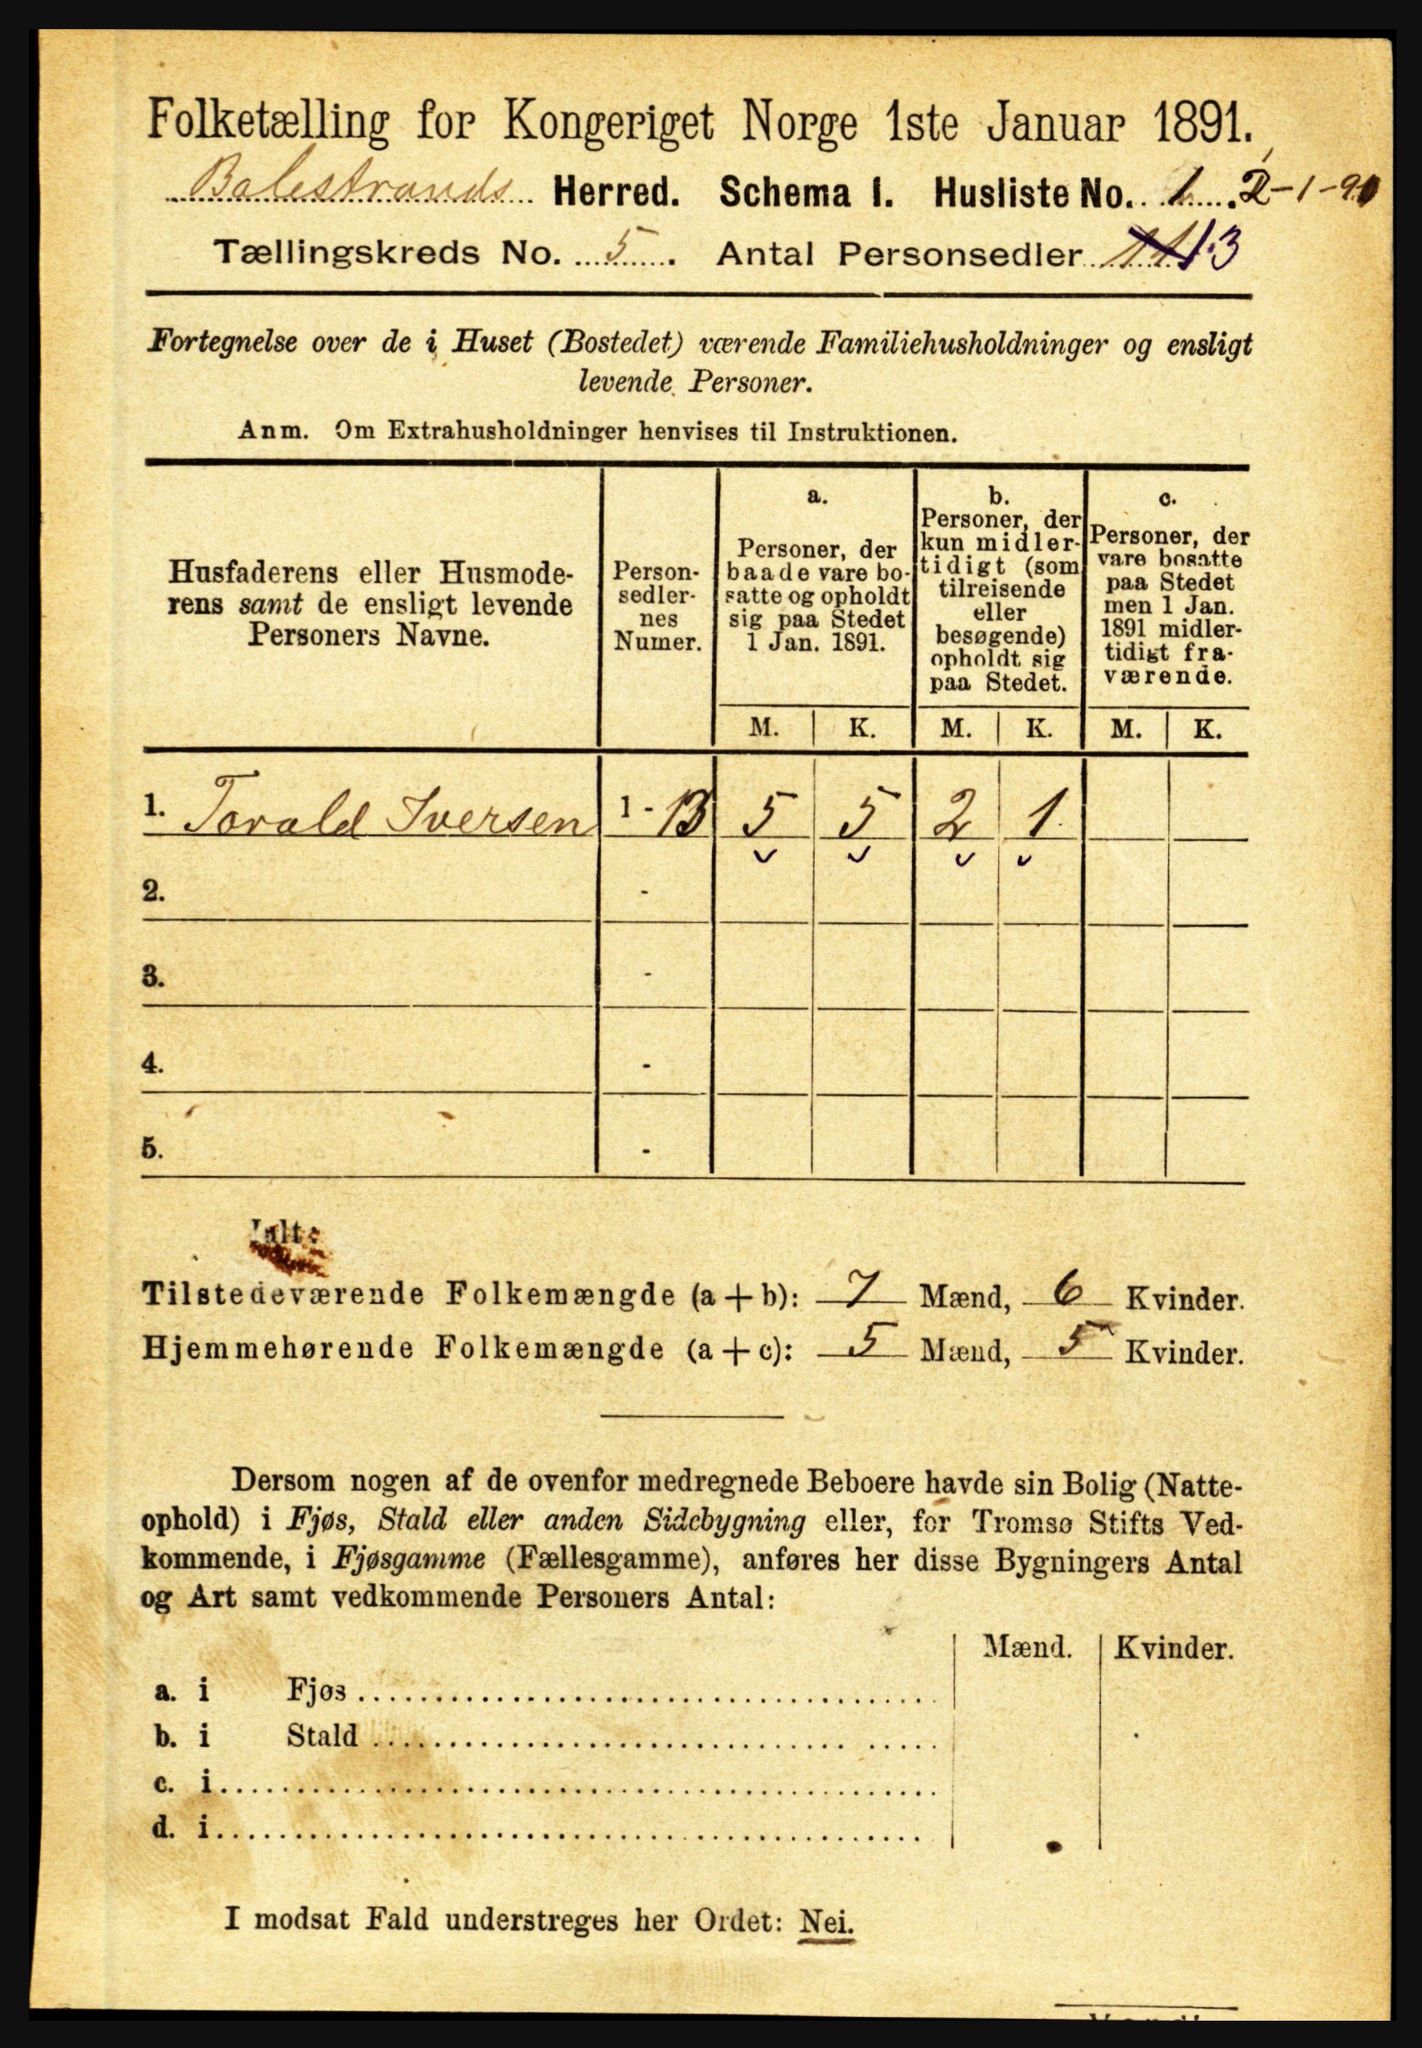 Folketælling for Kongeriget Norge 1ste Januar 1891.
Balestrands Herred. Schema I. Husliste No. 1. 2-1-91
Tællingskreds No. 5. Antal Personsedler 13
Fortegnelse over de i Huset (Bostedet) værende Familiehusholdninger og ensligt
levende Personer.
Anm. Om Extrahusholdninger henvises til Instruktionen.
Husfaderens eller Husmode-
rens samt de ensligt levende
Personers Navne.
Person-
sedler-
nes
Numer.
a.
Personer, der
baade vare bo-
satte og opholdt
sig paa Stedet
1 Jan. 1891.
b.
Personer, der
kun midler-
tidigt (som
tilreisende
eller
besøgende)
opholdt sig
paa Stedet.
c.
Personer, der
vare bosatte
paa Stedet
men 1 Jan.
1891 midler-
tidigt fra-
værende.
M. K. M. K. M. K.
1. Torald Iversen 1 - 13 5 5 2 1
2. -
3. -
4. -
5. -
Ialt:
Tilstedeværende Folkemængde (a + b): 7 Mænd, 6 Kvinder.
Hjemmehørende Folkemængde (a + c): 5 Mænd, 5 Kvinder.
Dersom nogen af de ovenfor medregnede Beboere havde sin Bolig (Natte-
ophold) i Fjøs, Stald eller anden Sidebygning eller, for Tromsø Stifts Ved-
kommende, i Fjøsgamme (Fællesgamme), anføres her disse Bygningers Antal
og Art samt vedkommende Personers Antal:
Mænd. Kvinder.
a. i Fjøs
b. i Stald
c. i
d. i
I modsat Fald understreges her Ordet: Nei.